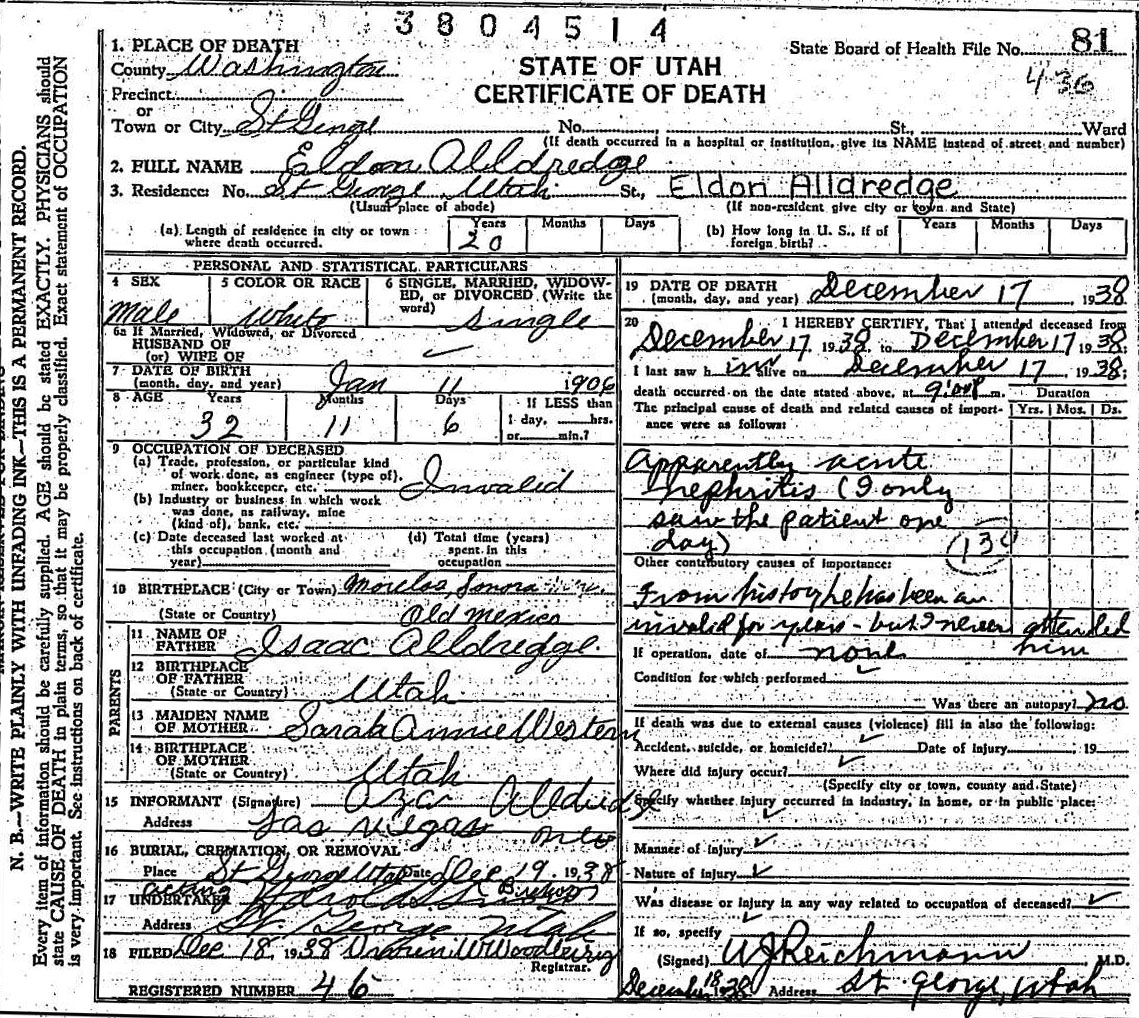 3804514
State Board of Health File No. 81
436
STATE OF UTAH
CERTIFICATE OF DEATH
1. PLACE OF DEATH
County Washington
Precinct
or
Town or City St George No. St., Ward
(If death occurred in a hospital or institution, give its NAME instead of street and number)
2. FULL NAME Eldon Alldredge
3. Residence: No. St George Utah St., Eldon Alldredge
(Usual place of abode) (If non-resident give city or town and State)
(a) Length of residence in city or town where death occurred. Years 20 Months Days
(b) How long in U. S., if of foreign birth? Years Months Days
PERSONAL AND STATISTICAL PARTICULARS
4 SEX Male
5 COLOR OR RACE White
6 SINGLE, MARRIED, WIDOWED, or DIVORCED (Write the word) Single
6a If Married, Widowed, or Divorced
HUSBAND OF
(or) WIFE OF
7 DATE OF BIRTH
(month, day, and year) Jan 11 1906
8 AGE Years Months Days If LESS than
32 11 6 1 day, hrs.
or min.?
9 OCCUPATION OF DECEASED
(a) Trade, profession, or particular kind
of work done, as engineer (type of),
miner, bookkeeper, etc. Invalid
(b) Industry or business in which work
was done, as railway, mine
(kind of), bank, etc.
(c) Date deceased last worked at
this occupation (month and
year)
(d) Total time (years)
spent in this
occupation
10 BIRTHPLACE (City or Town) Morelos Sonora
(State or Country) Old Mexico
PARENTS
11 NAME OF
FATHER Isaac Alldredge
12 BIRTHPLACE
OF FATHER
(State or Country) Utah
13 MAIDEN NAME
OF MOTHER Sarah Annie Western
14 BIRTHPLACE
OF MOTHER
(State or Country) Utah
15 INFORMANT (Signature) Alldredge
Address Las Vegas
16 BURIAL, CREMATION, OR REMOVAL
Place St George Utah Date Dec 19, 1938
acting Bishop
17 UNDERTAKER Harold
Address St. George Utah
18 FILED Dec 18, 1938 Woodbury
Registrar.
REGISTERED NUMBER 46
19 DATE OF DEATH
(month, day, and year) December 17 1938
20 I HEREBY CERTIFY, That I attended deceased from
December 17 1938 to December 17 1938
I last saw him alive on December 17, 1938;
death occurred on the date stated above, at 9:00 P m.
Duration
The principal cause of death and related causes of importance were as follows:
Yrs. Mos. Ds.
Apparently acute
nephritis (I only
saw the patient one
day)
130
Other contributory causes of importance:
From history he has been an
invalid for years - but I never attended
him
If operation, date of none
Condition for which performed
Was there an autopsy? no
If death was due to external causes (violence) fill in also the following:
Accident, suicide, or homicide? Date of injury , 19
Where did injury occur?
(Specify city or town, county and State)
Specify whether injury occurred in industry, in home, or in public place:
Manner of injury
Nature of injury
Was disease or injury in any way related to occupation of deceased?
If so, specify
(Signed) W J Reichmann M.D.
December 18 1938 Address St. George, Utah
N. B.—WRITE PLAINLY WITH UNFADING INK—THIS IS A PERMANENT RECORD.
Every item of information should be carefully supplied. AGE should be stated EXACTLY. PHYSICIANS should
state CAUSE OF DEATH in plain terms, so that it may be properly classified. Exact statement of OCCUPATION
is very important. See instructions on back of certificate.